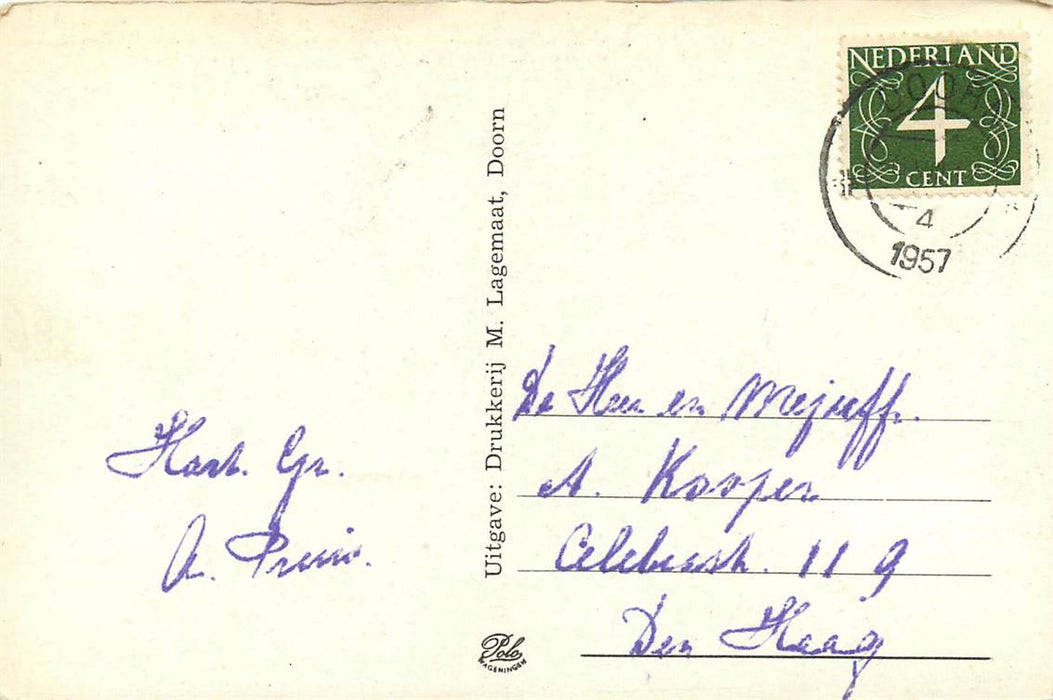 NEDERLAND
4
CENT
4
1957
Uitgave: Drukkerij M. Lagemaat, Doorn
De Heer en Mejuffr.
A. Kooper
Celebesstr. 11 g
Den Haag
Hart. Gr.
A.
Polo
WAGENINGEN